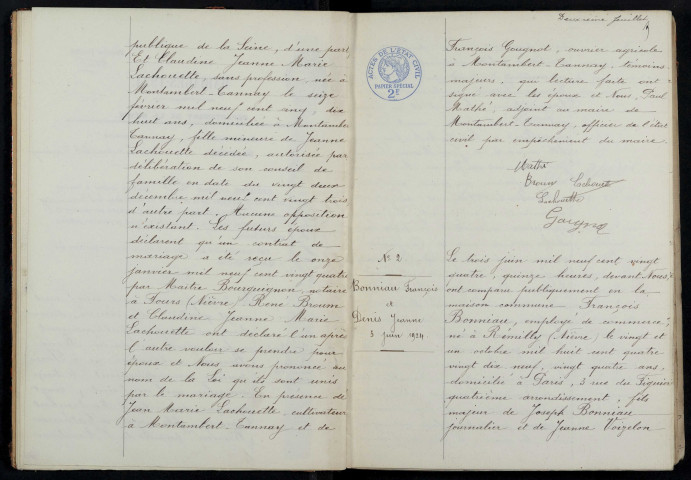 publique de la Seine, d'une part
Et Claudine Jeanne Marie
Lachouette, sans profession, née à
Montambert-Tannay le seize
février mil neuf cent six, dix
huit ans, domiciliée à Montambert
Tannay, fille mineure de Jeanne
Lachouette décédée, autorisée par
délibération de son conseil de
famille en date du vingt deux
décembre mil neuf cent vingt trois
d'autre part. Aucune opposition
n'existant. Les futurs époux
déclarent qu'un contrat de
mariage a été reçu le onze
janvier mil neuf cent vingt quatre
par Maître Bourguignon notaire
à Fours (Nièvre). René Broum
et Claudine Jeanne Marie
Lachouette ont déclaré l'un après
l'autre vouloir se prendre pour
époux et Nous avons prononcé au
nom de la Loi qu'ils sont unis
par le mariage. En présence de
Jean Marie Lachouette, cultivateur
à Montambert-Tannay et de
ACTES DE L'ÉTAT CIVIL
PAPIER SPÉCIAL
2F
N° 2
Bonniau François
et
Denis Jeanne
3 juin 1924
François Gougnot, ouvrier agricole
à Montambert-Tannay, témoins
majeurs, qui lecture faite ont
signé avec les époux et Nous, Paul
Mathé, adjoint au maire de
Montambert-Tannay, officier de l'état
civil par empêchement du maire.
Mathé
Broum Lachouette
Lachouette
Le trois juin mil neuf cent vingt
quatre, quinze heures, devant Nous,
ont comparu publiquement en la
maison commune François
Bonniau, employé de commerce,
né à Rémilly (Nièvre) le vingt et
un octobre mil huit cent quatre
vingt dix neuf, vingt quatre ans,
domicilié à Paris, 3 rue du Figuier
quatrième arrondissement, fils
majeur de Joseph Bonniau
journalier et de Jeanne